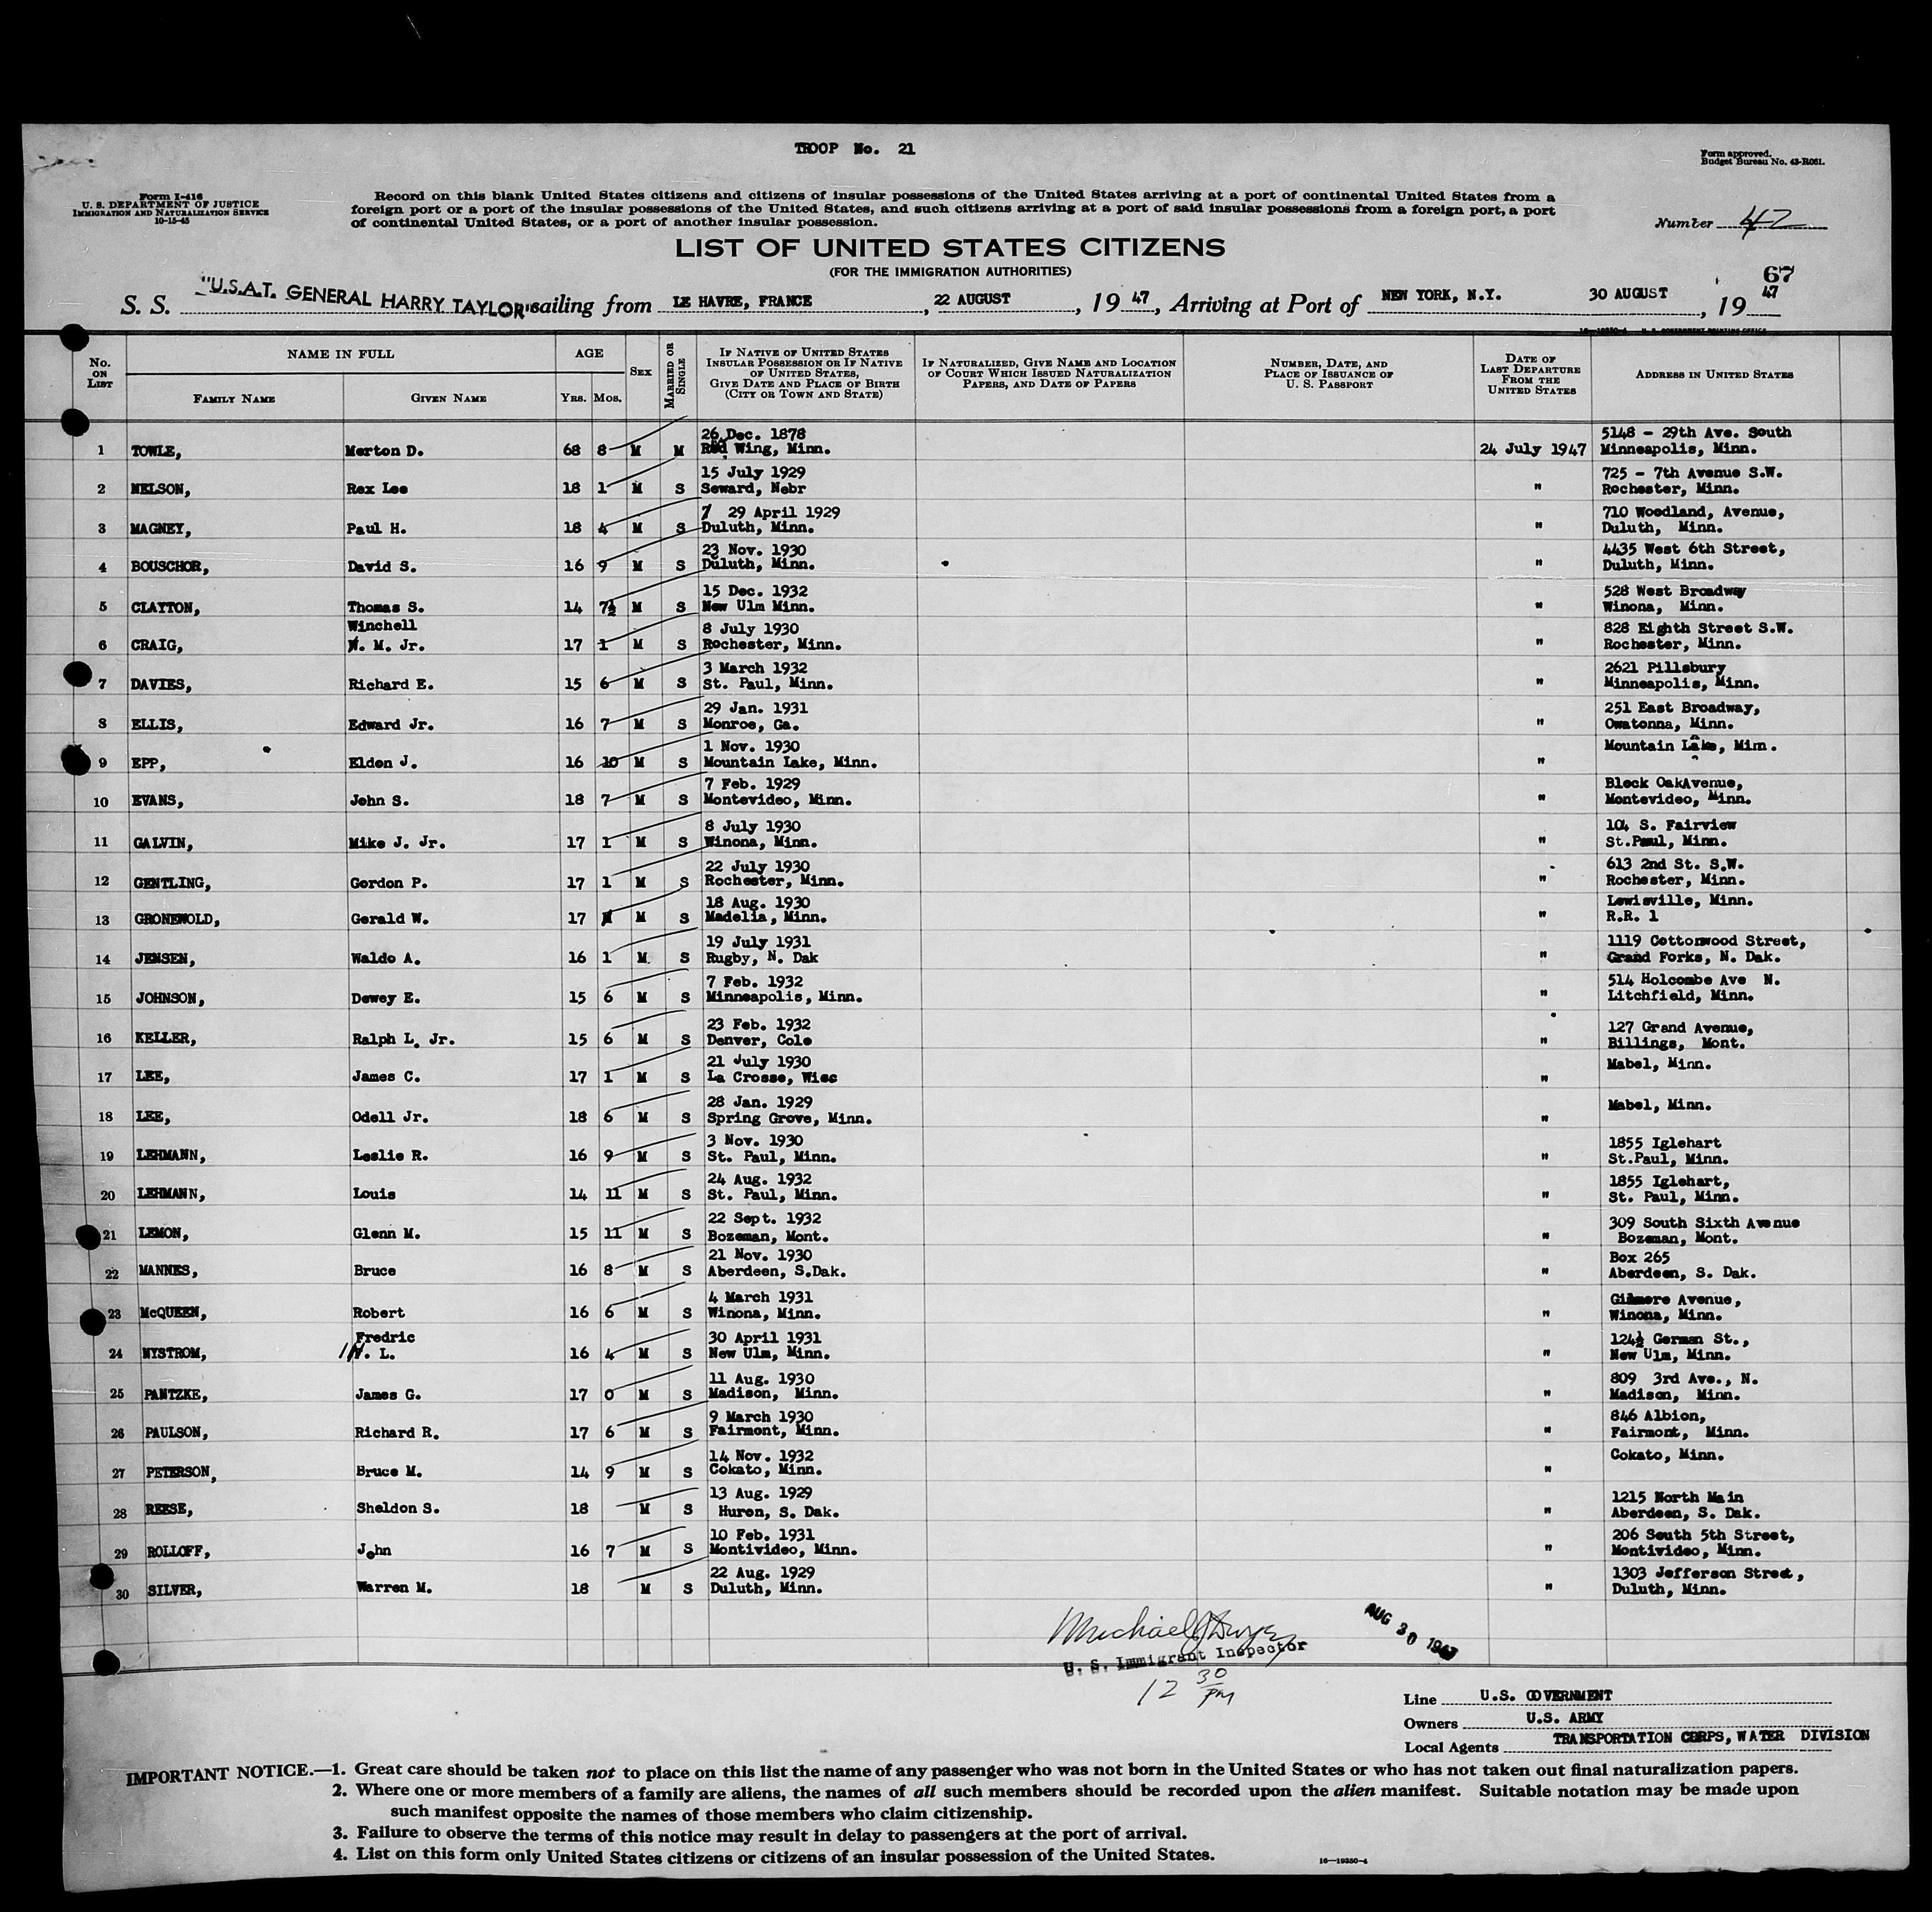 TROOP No. 21
Form approved.
Budget Bureau No. 43-R061.
Form I-416
U. S. DEPARTMENT OF JUSTICE
IMMIGRATION AND NATURALIZATION SERVICE
10-15-45
Record on this blank United States citizens and citizens of insular possessions of the United States arriving at a port of continental United States from a
foreign port or a port of the insular possessions of the United States, and such citizens arriving at a port of said insular possessions from a foreign port, a port
of continental United States, or a port of another insular possession.
Number 42
LIST OF UNITED STATES CITIZENS
(FOR THE IMMIGRATION AUTHORITIES)
67
S. S. "U.S.A.T. GENERAL HARRY TAYLOR" sailing from LE HAVRE, FRANCE, 22 AUGUST, 19 47, Arriving at Port of NEW YORK, N.Y. 30 AUGUST, 19 47
No. ON LIST
NAME IN FULL
FAMILY NAME
GIVEN NAME
AGE
YRS. MOS.
SEX
MARRIED OR SINGLE
IF NATIVE OF UNITED STATES
INSULAR POSSESSION OR IF NATIVE
OF UNITED STATES,
GIVE DATE AND PLACE OF BIRTH
(CITY OR TOWN AND STATE)
IF NATURALIZED, GIVE NAME AND LOCATION
OF COURT WHICH ISSUED NATURALIZATION
PAPERS, AND DATE OF PAPERS
NUMBER, DATE, AND
PLACE OF ISSUANCE OF
U. S. PASSPORT
DATE OF
LAST DEPARTURE
FROM THE
UNITED STATES
ADDRESS IN UNITED STATES
26 Dec. 1878 5148 - 29th Ave. South
1 TOWLE, Merton D. 68 8 M M Red Wing, Minn. 24 July 1947 Minneapolis, Minn.
15 July 1929 725 - 7th Avenue S.W.
2 NELSON, Rex Lee 18 1 M S Seward, Nebr " Rochester, Minn.
29 April 1929 710 Woodland, Avenue,
3 MAGNEY, Paul H. 18 4 M S Duluth, Minn. " Duluth, Minn.
23 Nov. 1930 4435 West 6th Street,
4 BOUSCHOR, David S. 16 9 M S Duluth, Minn. " Duluth, Minn.
15 Dec. 1932 528 West Broadway
5 CLAYTON, Thomas S. 14 7½ M S New Ulm Minn. " Winona, Minn.
Winchell 8 July 1930 828 Eighth Street S.W.
6 CRAIG, W. M. Jr. 17 1 M S Rochester, Minn. " Rochester, Minn.
3 March 1932 2621 Pillsbury
7 DAVIES, Richard E. 15 6 M S St. Paul, Minn. " Minneapolis, Minn.
29 Jan. 1931 251 East Broadway,
8 ELLIS, Edward Jr. 16 7 M S Monroe, Ga. " Owatonna, Minn.
1 Nov. 1930 Mountain Lake, Mim.
9 EPP, Eldon J. 16 10 M S Mountain Lake, Minn. "
7 Feb. 1929 Block OakAvenue,
10 EVANS, John S. 18 7 M S Montevideo, Minn. " Montevideo, Minn.
8 July 1930 104 S. Fairview
11 GALVIN, Mike J. Jr. 17 1 M S Winona, Minn. " St.Paul, Minn.
22 July 1930 613 2nd St. S.W.
12 GENTLING, Gordon P. 17 1 M S Rochester, Minn. " Rochester, Minn.
18 Aug. 1930 Lewisville, Minn.
13 GRONEWOLD, Gerald W. 17 M S Madelia, Minn. " R.R. 1
19 July 1931 1119 Cottonwood Street,
14 JENSEN, Waldo A. 16 1 M S Rugby, N. Dak " Grand Forks, N. Dak.
7 Feb. 1932 514 Holcombe Ave N.
15 JOHNSON, Dewey E. 15 6 M S Minneapolis, Minn. " Litchfield, Minn.
23 Feb. 1932 127 Grand Avenue,
16 KELLER, Ralph L. Jr. 15 6 M S Denver, Colo " Billings, Mont.
21 July 1930 Mabel, Minn.
17 LEE, James C. 17 1 M S La Crosse, Wisc "
28 Jan. 1929 Mabel, Minn.
18 LEE, Odell Jr. 18 6 M S Spring Grove, Minn. "
3 Nov. 1930 1855 Iglehart
19 LEHMANN, Leslie R. 16 9 M S St. Paul, Minn. " St.Paul, Minn.
24 Aug. 1932 1855 Iglehart,
20 LEHMANN, Louis 14 11 M S St. Paul, Minn. " St. Paul, Minn.
22 Sept. 1932 309 South Sixth Avenue
21 LEMON, Glenn M. 15 11 M S Bozeman, Mont. " Bozeman, Mont.
21 Nov. 1930 Box 265
22 MANNES, Bruce 16 8 M S Aberdeen, S.Dak. " Aberdeen, S. Dak.
4 March 1931 Gilmore Avenue,
23 McQUEEN, Robert 16 6 M S Winona, Minn. " Winona, Minn.
Fredric 30 April 1931 124½ German St.,
24 NYSTROM, L. 16 4 M S New Ulm, Minn. " New Ulm, Minn.
11 Aug. 1930 809 3rd Ave., N.
25 PANTZKE, James G. 17 0 M S Madison, Minn. " Madison, Minn.
9 March 1930 846 Albion,
26 PAULSON, Richard R. 17 6 M S Fairmont, Minn. " Fairmont, Minn.
14 Nov. 1932 Cokato, Minn.
27 PETERSON, Bruce M. 14 9 M S Cokato, Minn. "
13 Aug. 1929 1215 North Main
28 REESE, Sheldon S. 18 M S Huron, S. Dak. " Aberdeen, S. Dak.
10 Feb. 1931 206 South 5th Street,
29 ROLLOFF, John 16 7 M S Montivideo, Minn. " Montivideo, Minn.
22 Aug. 1929 1303 Jefferson Street,
30 SILVER, Warren M. 18 M S Duluth, Minn. " Duluth, Minn.
Michael J Dwyer
AUG 30 1947
U. S. Immigrant Inspector
12 30 pm
Line U.S. GOVERNMENT
Owners U.S. ARMY
Local Agents TRANSPORTATION CORPS, WATER DIVISION
IMPORTANT NOTICE.—1. Great care should be taken not to place on this list the name of any passenger who was not born in the United States or who has not taken out final naturalization papers.
2. Where one or more members of a family are aliens, the names of all such members should be recorded upon the alien manifest. Suitable notation may be made upon
such manifest opposite the names of those members who claim citizenship.
3. Failure to observe the terms of this notice may result in delay to passengers at the port of arrival.
4. List on this form only United States citizens or citizens of an insular possession of the United States.
16—19350-4